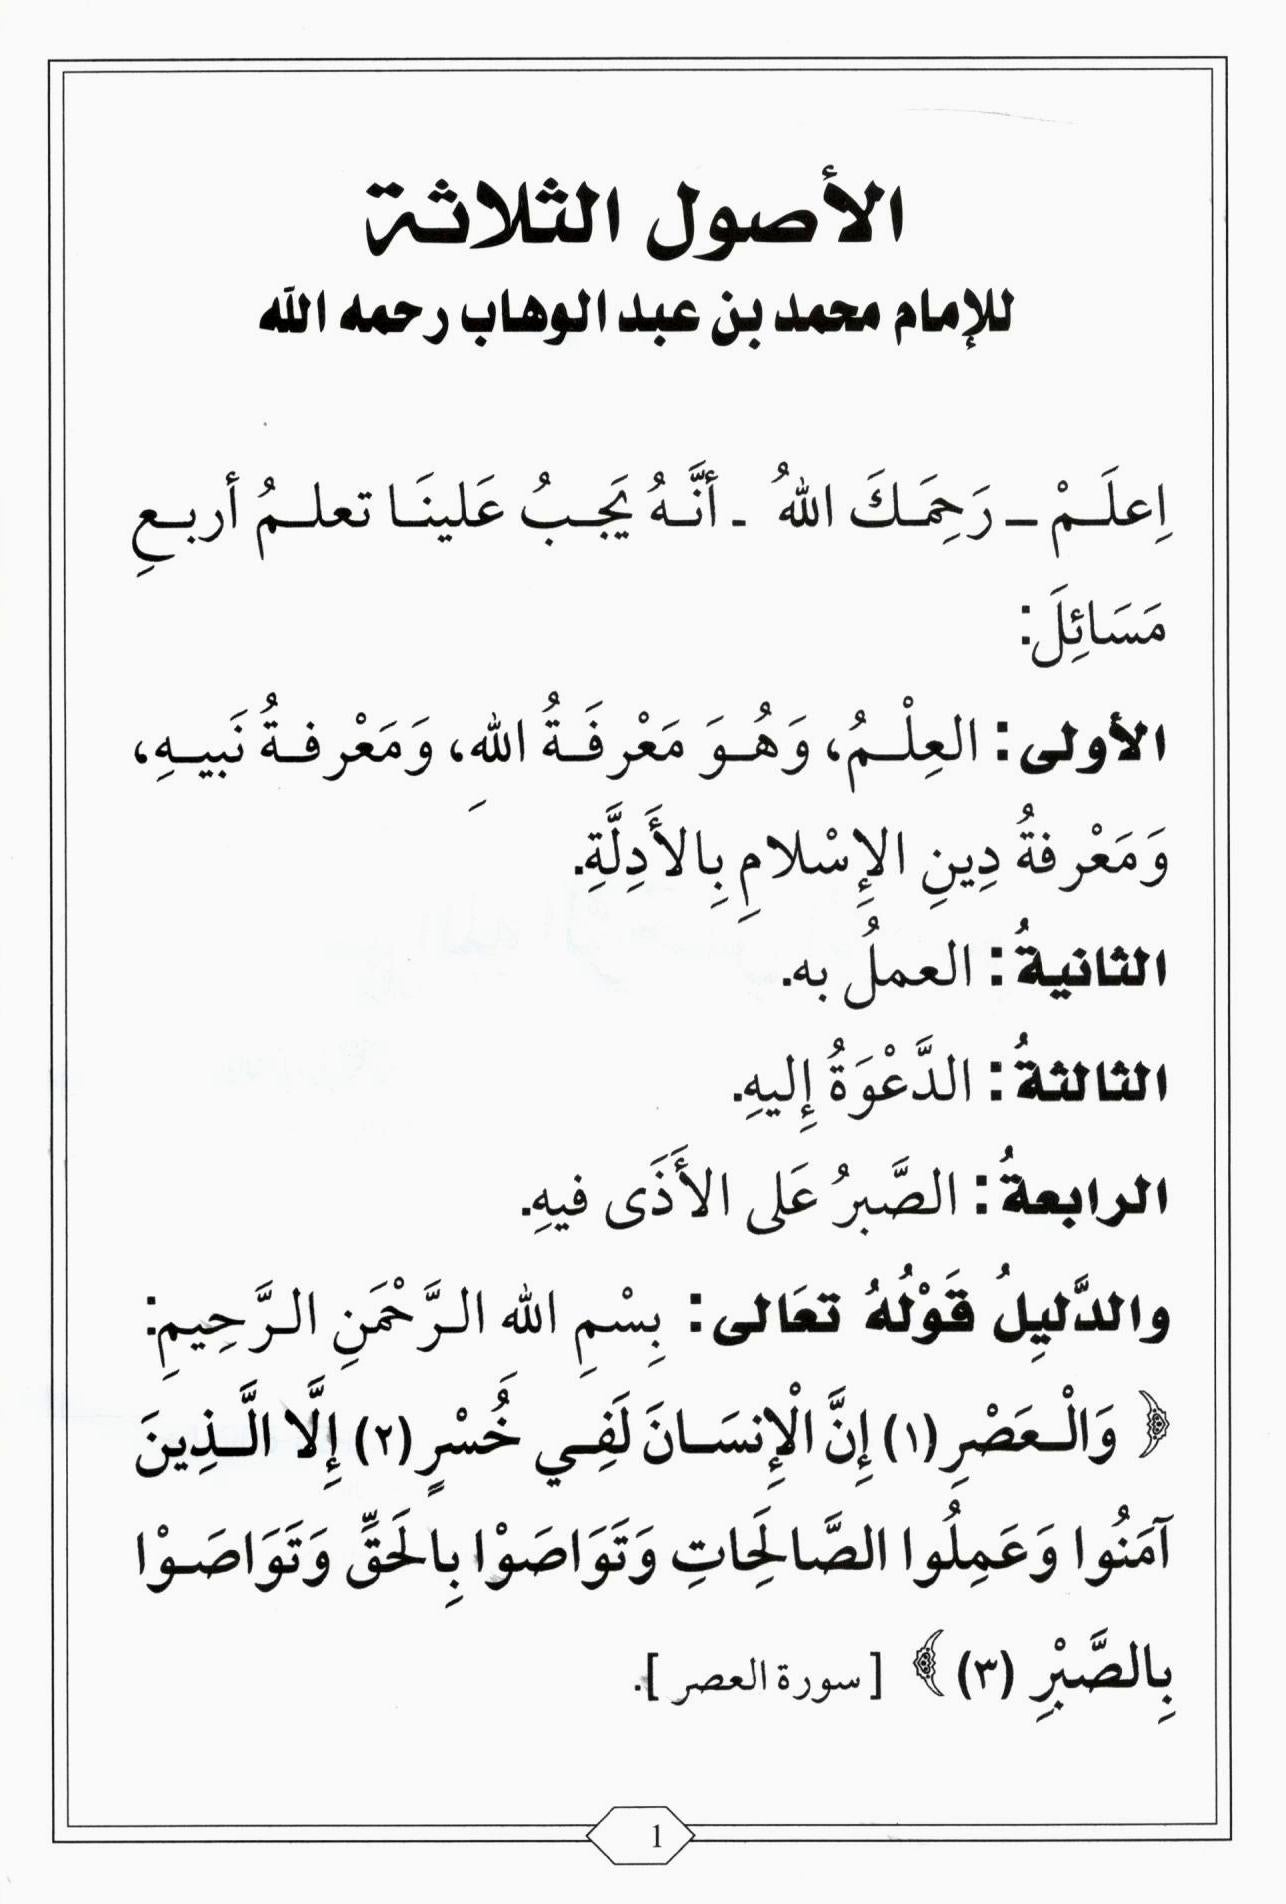 الأصول الثلاثة
للإمام محمد بن عبد الوهاب رحمه الله
اِعلَمْ – رَحِمَكَ اللهُ - أنَّهُ يَجبُ عَلينَا تعلمُ أربعِ
مَسَائِلَ:
الأولى: العِلْمُ، وَهُوَ مَعْرفَةُ اللهِ، وَمَعْرفةُ نَبيهِ،
وَمَعْرفةُ دِينِ الإِسْلامِ بِالأَدِلَّةِ.
الثانيةُ: العملُ به.
الثالثةُ: الدَّعْوَةُ إِليهِ.
الرابعةُ: الصَّبرُ عَلى الأَذَى فيهِ.
والدَّليلُ قَوْلُهُ تعَالى: بِسْمِ الله الرَّحْمَنِ الرَّحِيمِ:
﴿ وَالْعَصْرِ (١) إِنَّ الْإِنسَانَ لَفِي خُسْرٍ (٢) إِلَّا الَّذِينَ
آمَنُوا وَعَمِلُوا الصَّالِحَاتِ وَتَوَاصَوْا بِالحَقِّ وَتَوَاصَوْا
بِالصَّبْرِ (٣) ﴾ [ سورة العصر ].
1